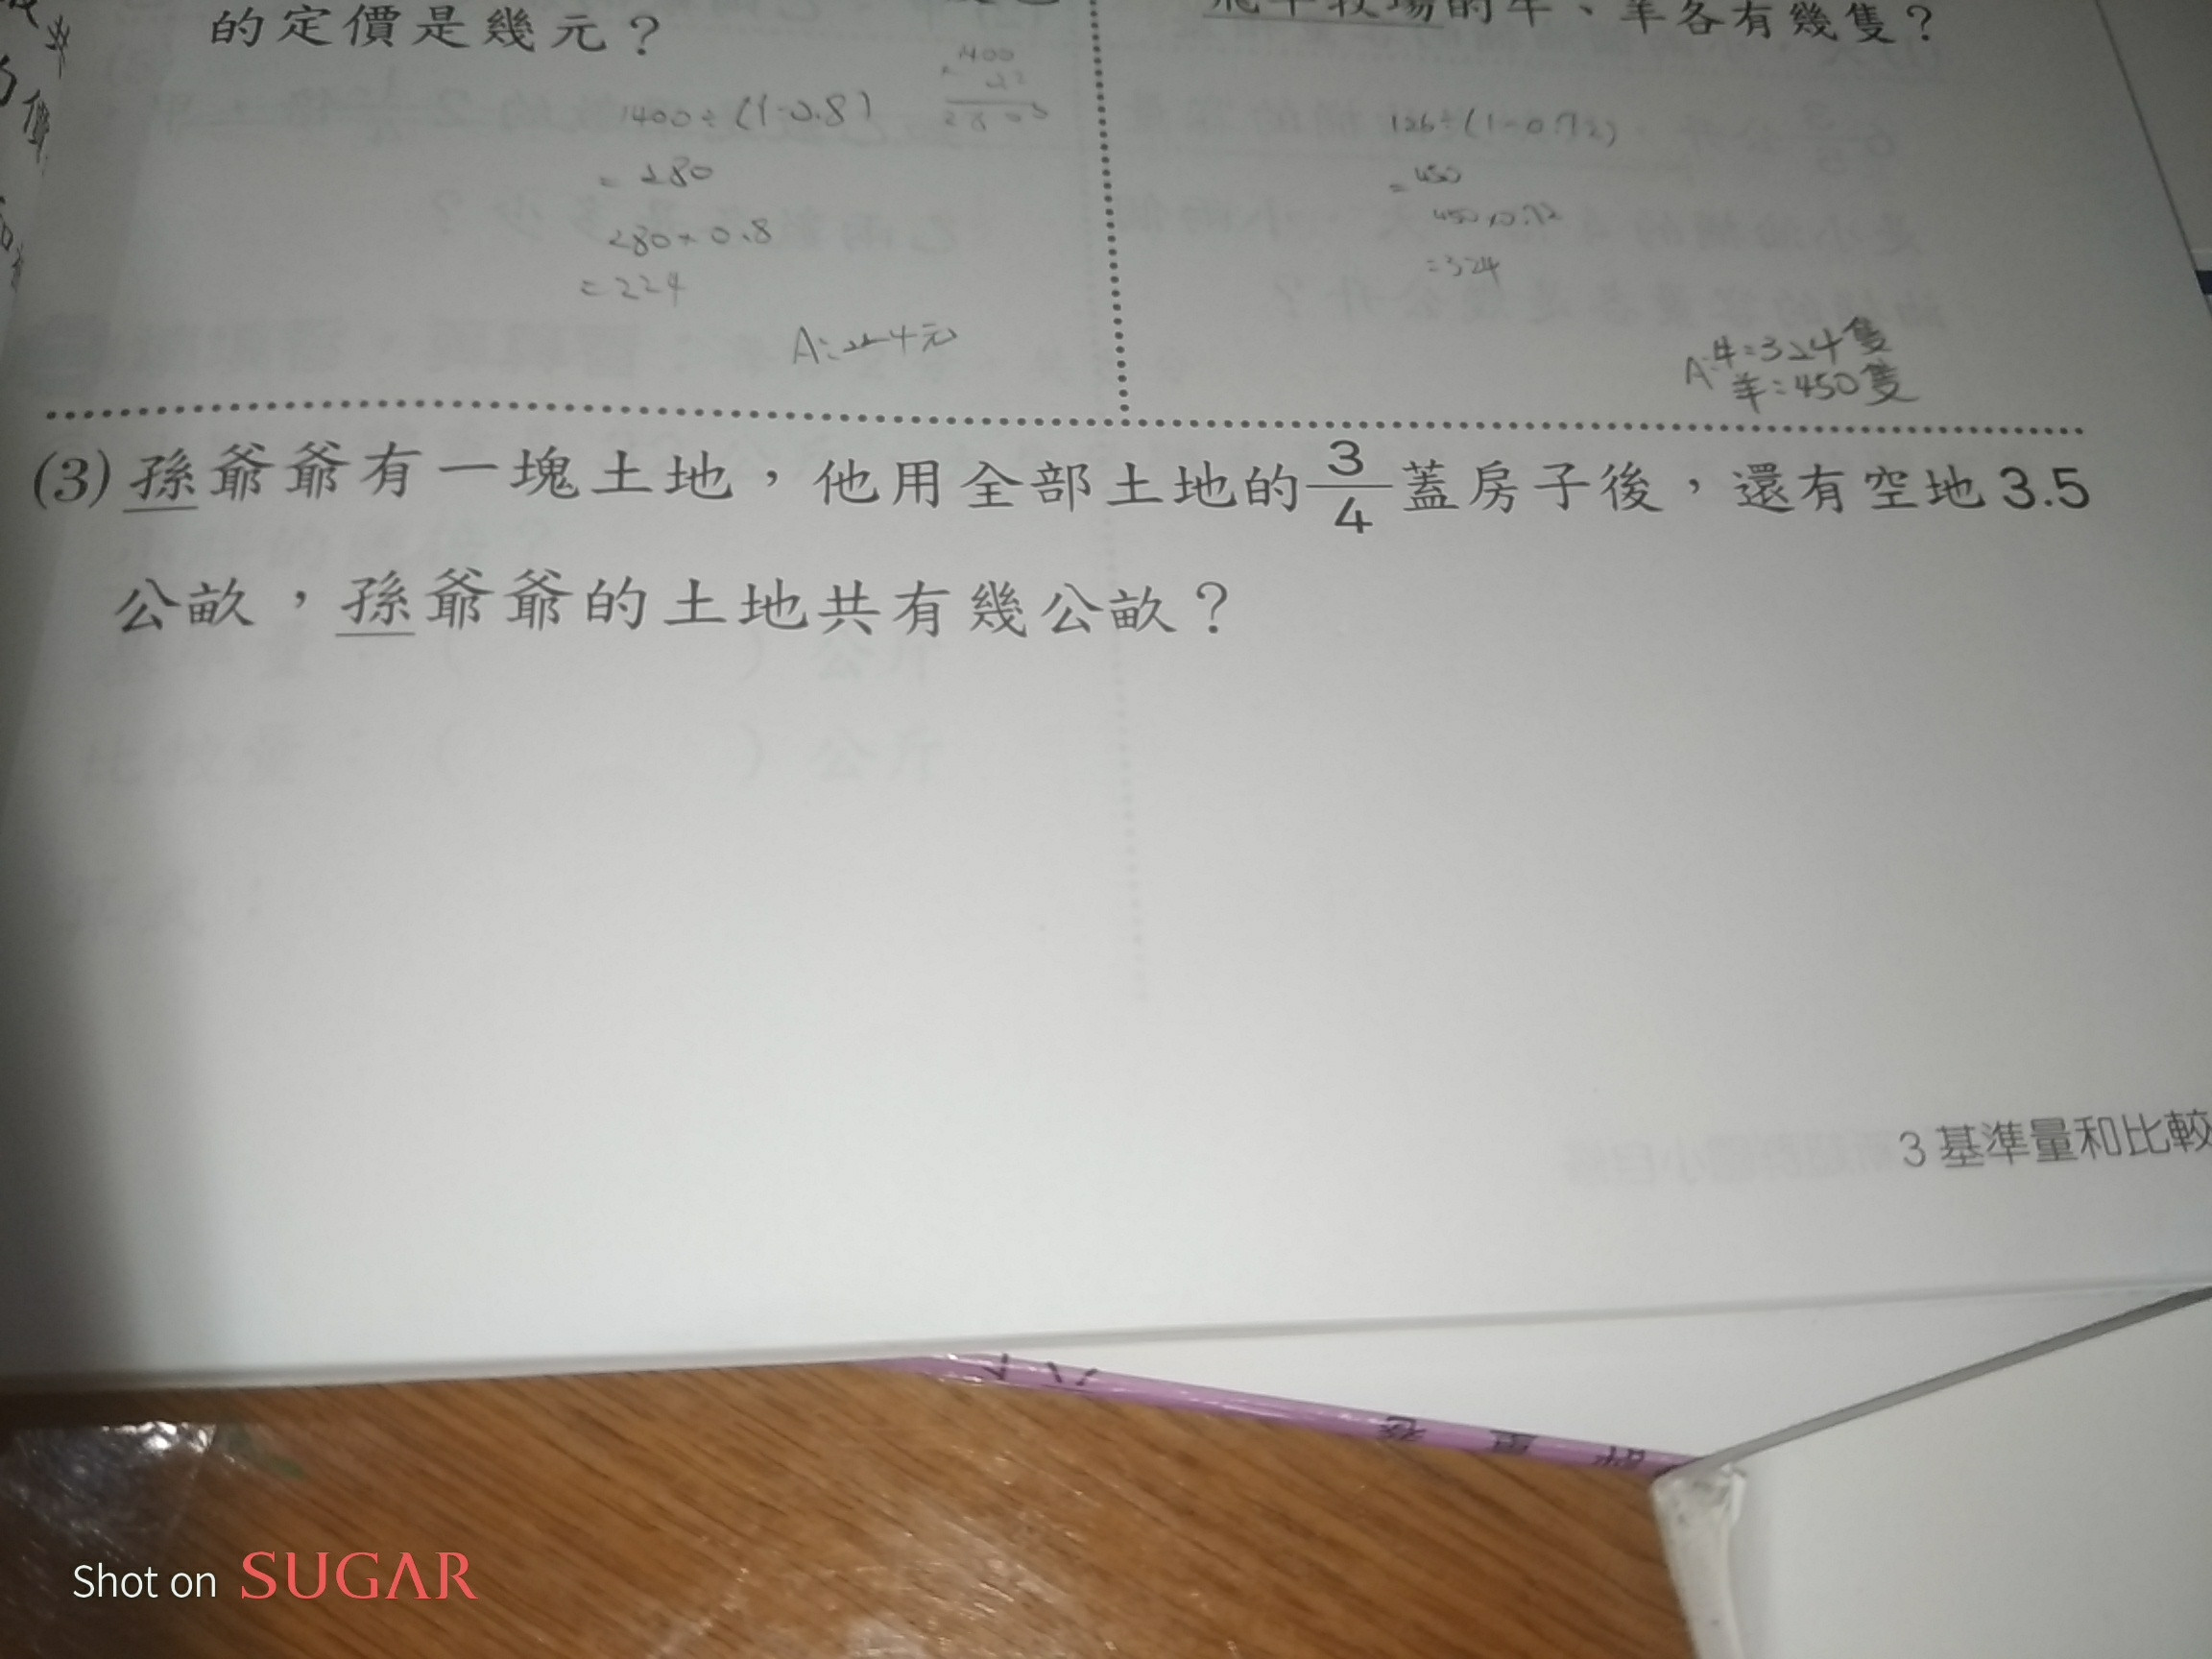 的定價是幾元？
1400÷(1-0.8)
= 280
280×0.8
=224
的牛、羊各有幾隻？
126÷(1-0.72)
=450
450×0.72
=324
A:牛=324隻
羊=450隻
(3)孫爺爺有一塊土地，他用全部土地的3/4蓋房子後，還有空地3.5
公畝，孫爺爺的土地共有幾公畝？
3 基準量和比較
Shot on SUGAR